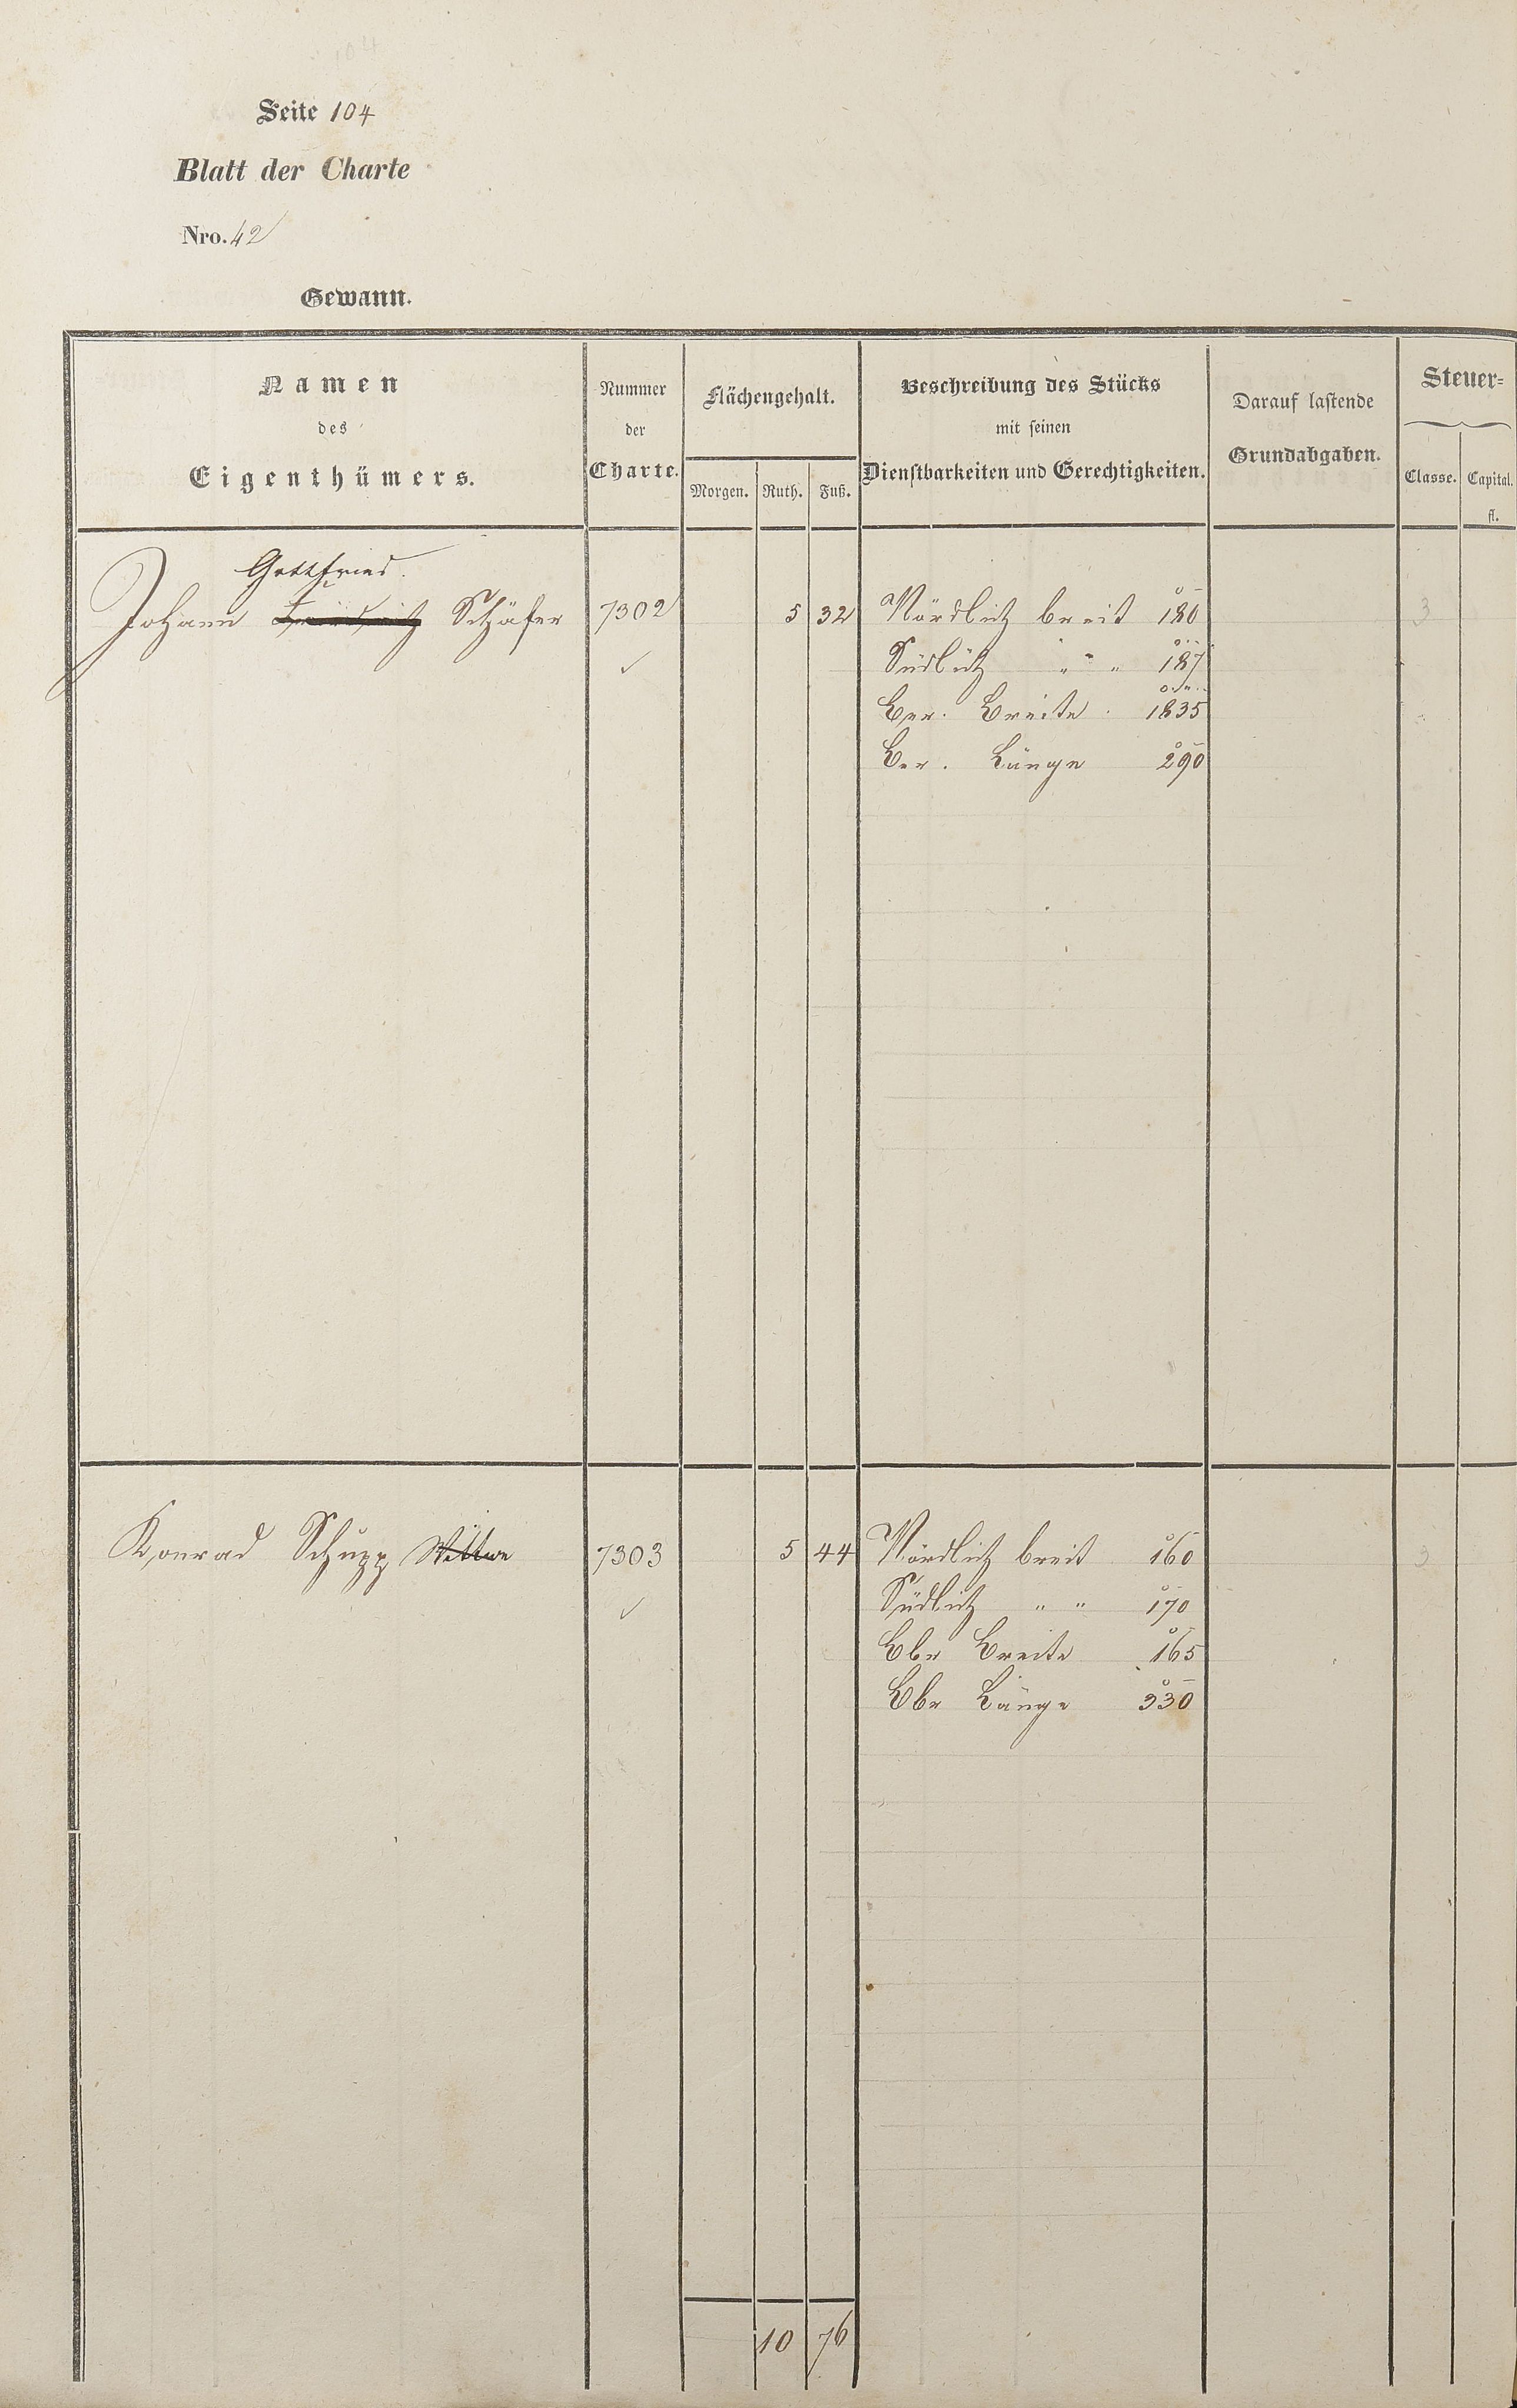 104
Seite 104
Blatt der Charte
Nro. 42
Gewann.
Namen
des
Eigenthümers.
Nummer
der
Charte.
Flächengehalt.
Morgen. Ruth. Fuß.
Beschreibung des Stücks
mit seinen
Dienstbarkeiten und Gerechtigkeiten.
Darauf lastende
Grundabgaben.
Steuer=
Classe. Capital.
fl.
Gottfried.
Johann Friedrich Schäfer 7302 5 32 Nördlich breit 180 3
Südlich " " 187
Ber. Breite 1835
Ber. Länge 290
Konrad Schupp Wittwe 7303 5 44 Nördlich breit 160 3
Südlich " " 170
Obr Breite 165
Obr Länge 330
10 76